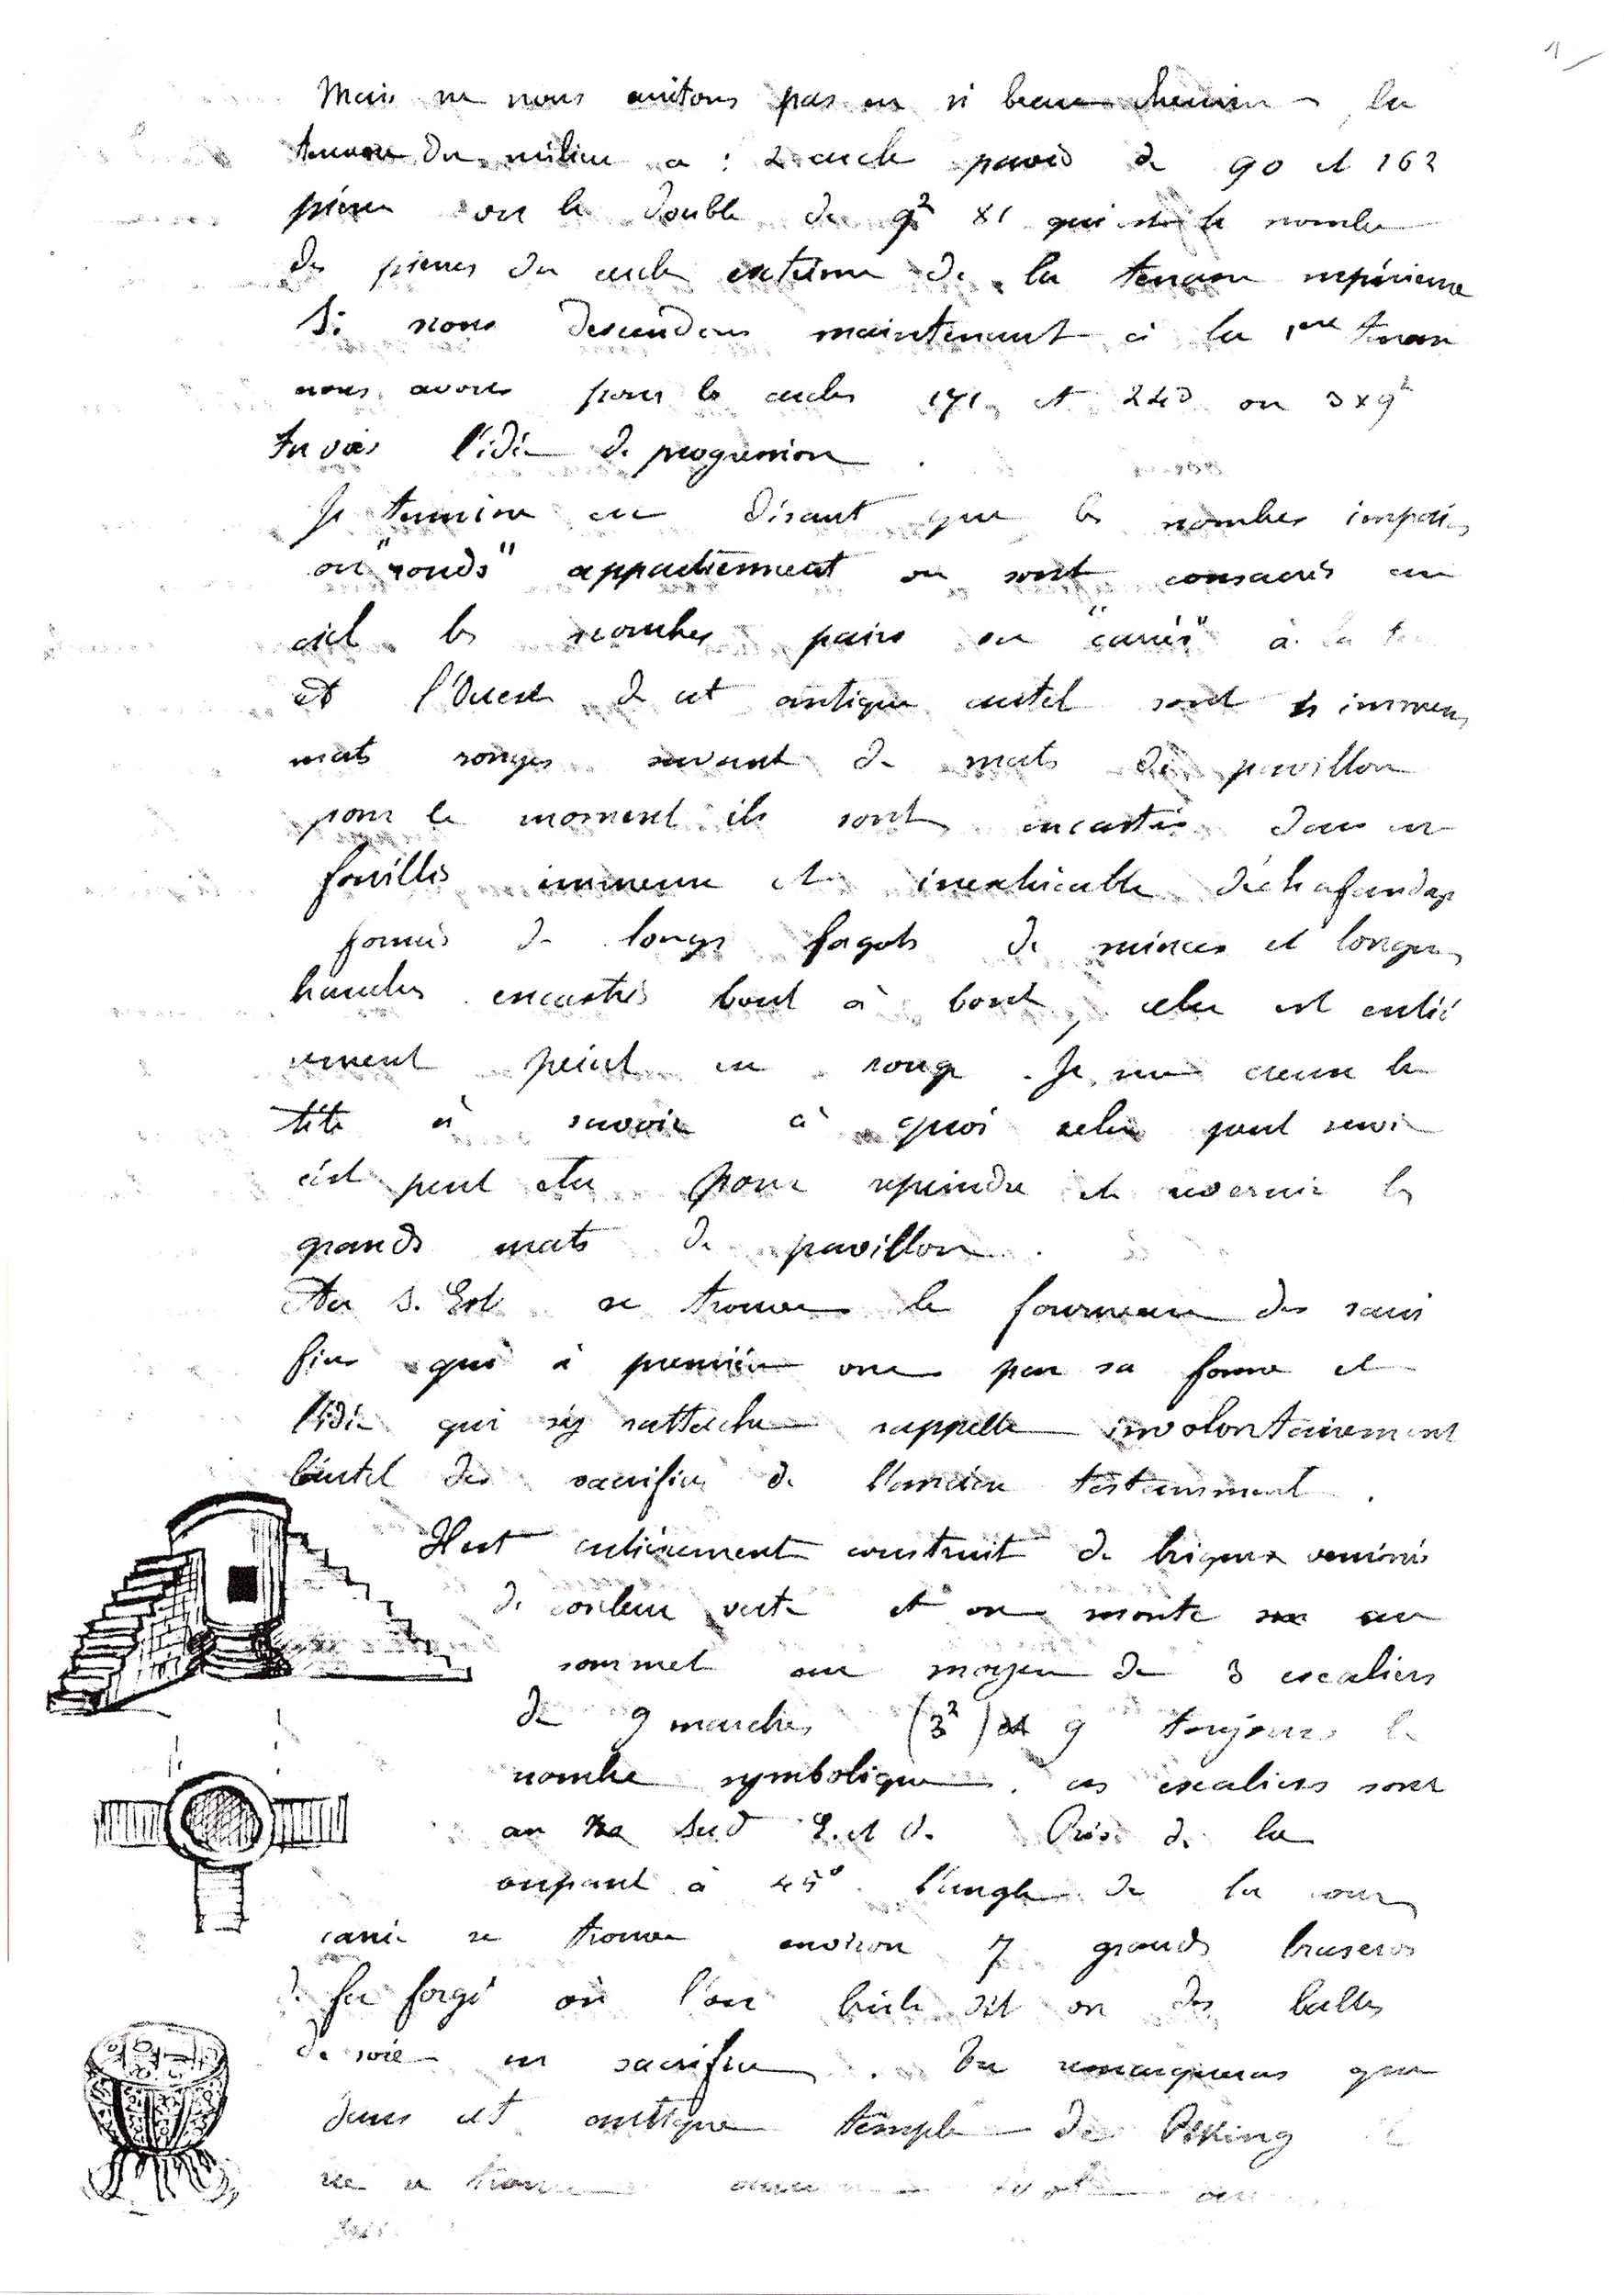 1
Mais ne nous arrêtons pas en si beau chemin la
terrasse du milieu a : 2 cercle pavés de 90 et 162
pierres ou le double de 9² 81 qui est le nombre
des pierres du cercle extérieur de la terrasse supérieure
Si nous descendons maintenant à la 1ere terrasse
nous avons pour les cercles 171 et 243 ou 3x9²
Tu vois l'idée de progression
Je termine en disant que les nombres impairs
ou "ronds" appartiennent ou sont consacrés au
ciel les nombres pairs ou "carrés" à la
et l'Ouest de cet antique autel sont immenses
mats rouges servant de mats de pavillon
pour le moment ils sont encastrés dans un
fouillis immense et inextricable d'échafaudage
formés de longs fagots de minces et longues
branches encastrés bout à bout, cela est entiè
rement peint en rouge. Je me creuse la
tête à savoir à quoi cela peut servir
c'est peut etre pour repeindre et revernir les
grands mats de pavillon.
Au S. Est se trouve le fourneau des sacri
fices qui à première vue par sa forme et
l'idée qui s'y rattache rappelle involontairement
l'autel des sacrifices de l'ancien testamment.
Il est entièrement construit de briques vernissés
de couleur verte et on monte au
sommet au moyen de 3 escaliers
de 9 marches (3²) 9 toujours le
nombre symbolique. ces escaliers sont
au Sud E. et O. Près de la
coupant à 45° l'angle de la cour
carrée se trouve environ 7 grands braseros
de fer forgé où l'on brûle dit on des balles
de soie en sacrifice. Tu remarqueras que
dans cet antique temple de Peking il
ne se trouve